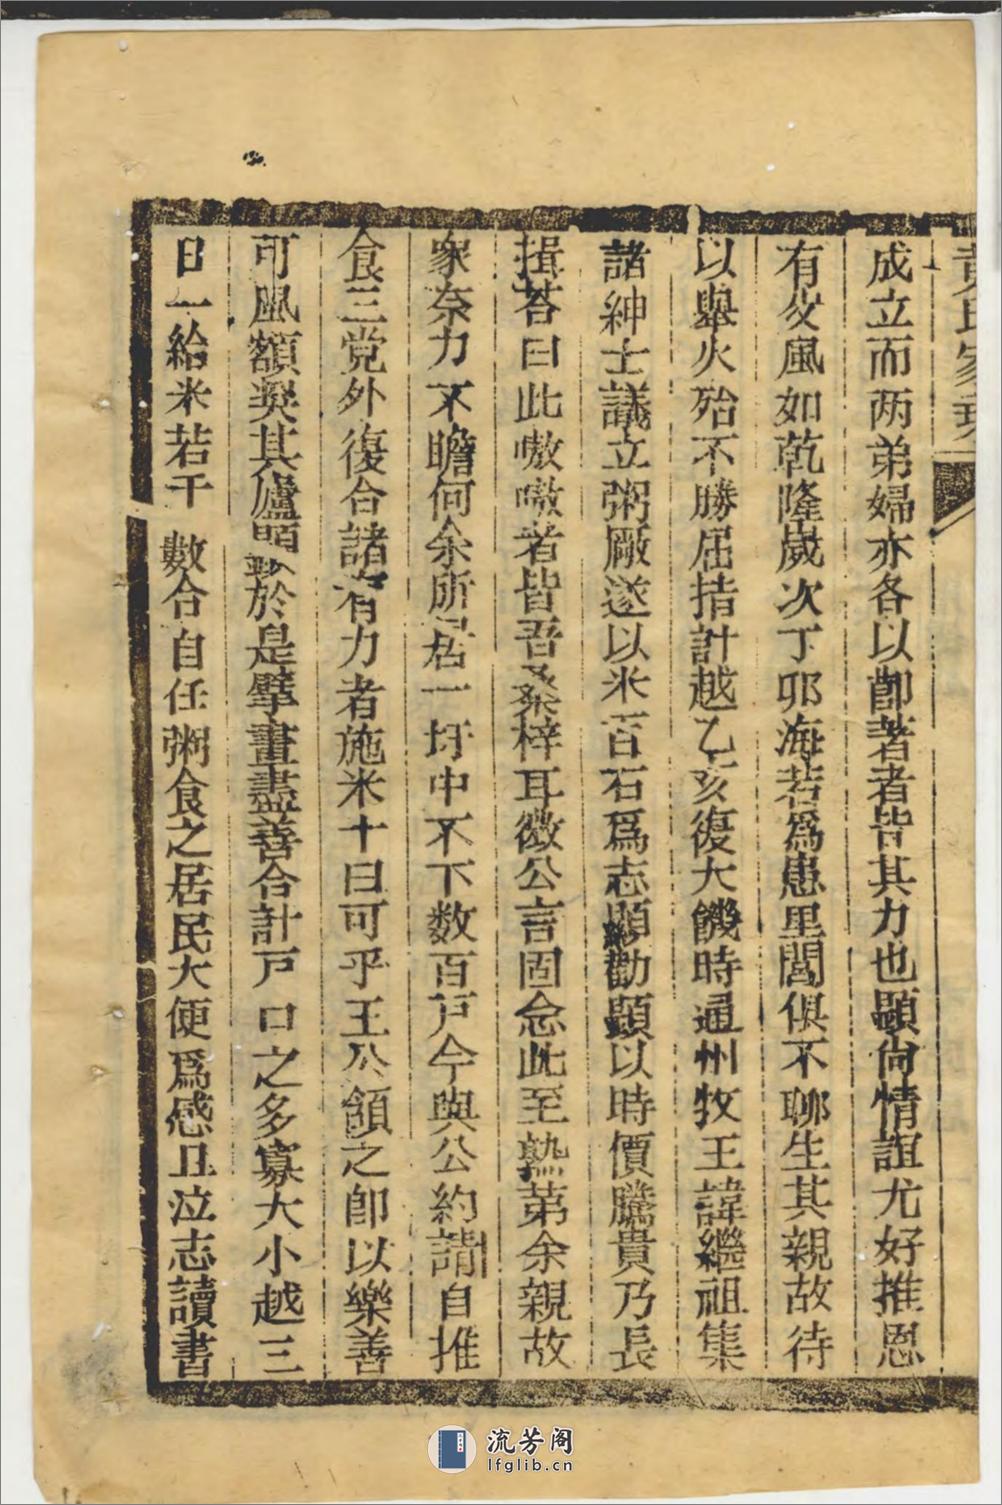 黄氏家
成立而两弟婦亦各以節著者皆其力也顯尙情誼尤好推恩
有攸風如乾隆歲次丁卯海若爲患里閭俱不聊生其親故待
以舉火殆不勝屈指計越乙亥復大饑時通州牧王諱繼祖集
諸紳士議立粥廠遂以米百石爲志顯勸顯以時價騰貴乃長
揖荅曰此嗷嗷者皆吾桑梓耳微公言固念此至熟第余親故
衆奈力不瞻何余所居一圩中不下数百戸今與公約請自推
食三党外復合諸有力者施米十日可乎王公頷之卽以樂善
可風額奖其廬於是擘畫盡善合計戸口之多寡大小越三
日一給米若干數合自任粥食之居民大便爲感且泣志讀書
流芳阁
lfglib.cn